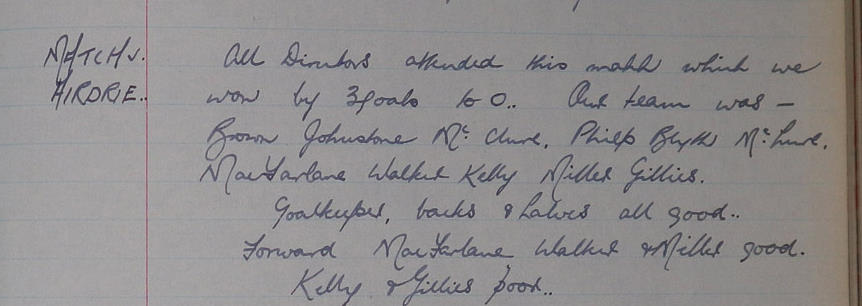 MATCH v. All Directors attended this match which we
AIRDRIE.. won by 3 goals to 0.. Our team was —
Brown Johnstone Mc Clure, Philip Blyth McLure.
MacFarlane Walker Kelly Miller Gillies.
Goalkeeper, backs & halves all good..
Forward MacFarlane Walker & Miller good.
Kelly & Gillies poor..